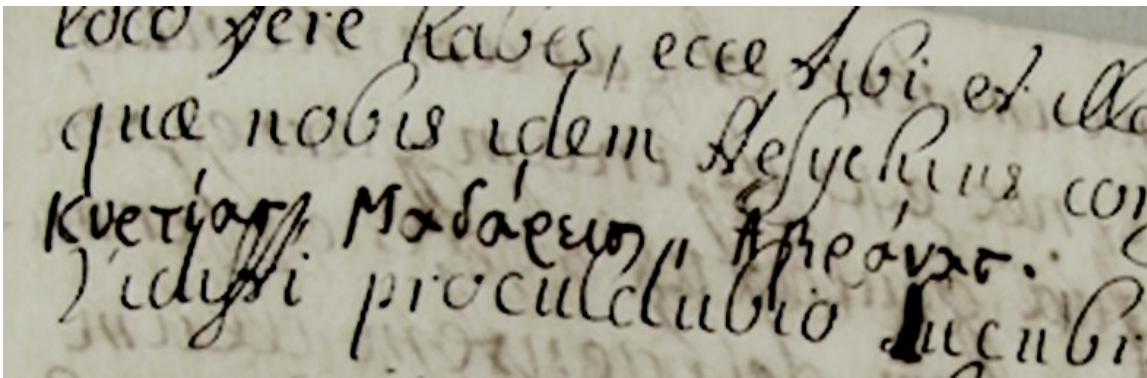 loco fere habes, ecce tibi et illa
quæ nobis idem Hesychius con
Κυρτίας, Μαδάρεις,, Ἀβράνας.
Vidisti proculdubio Lucubr